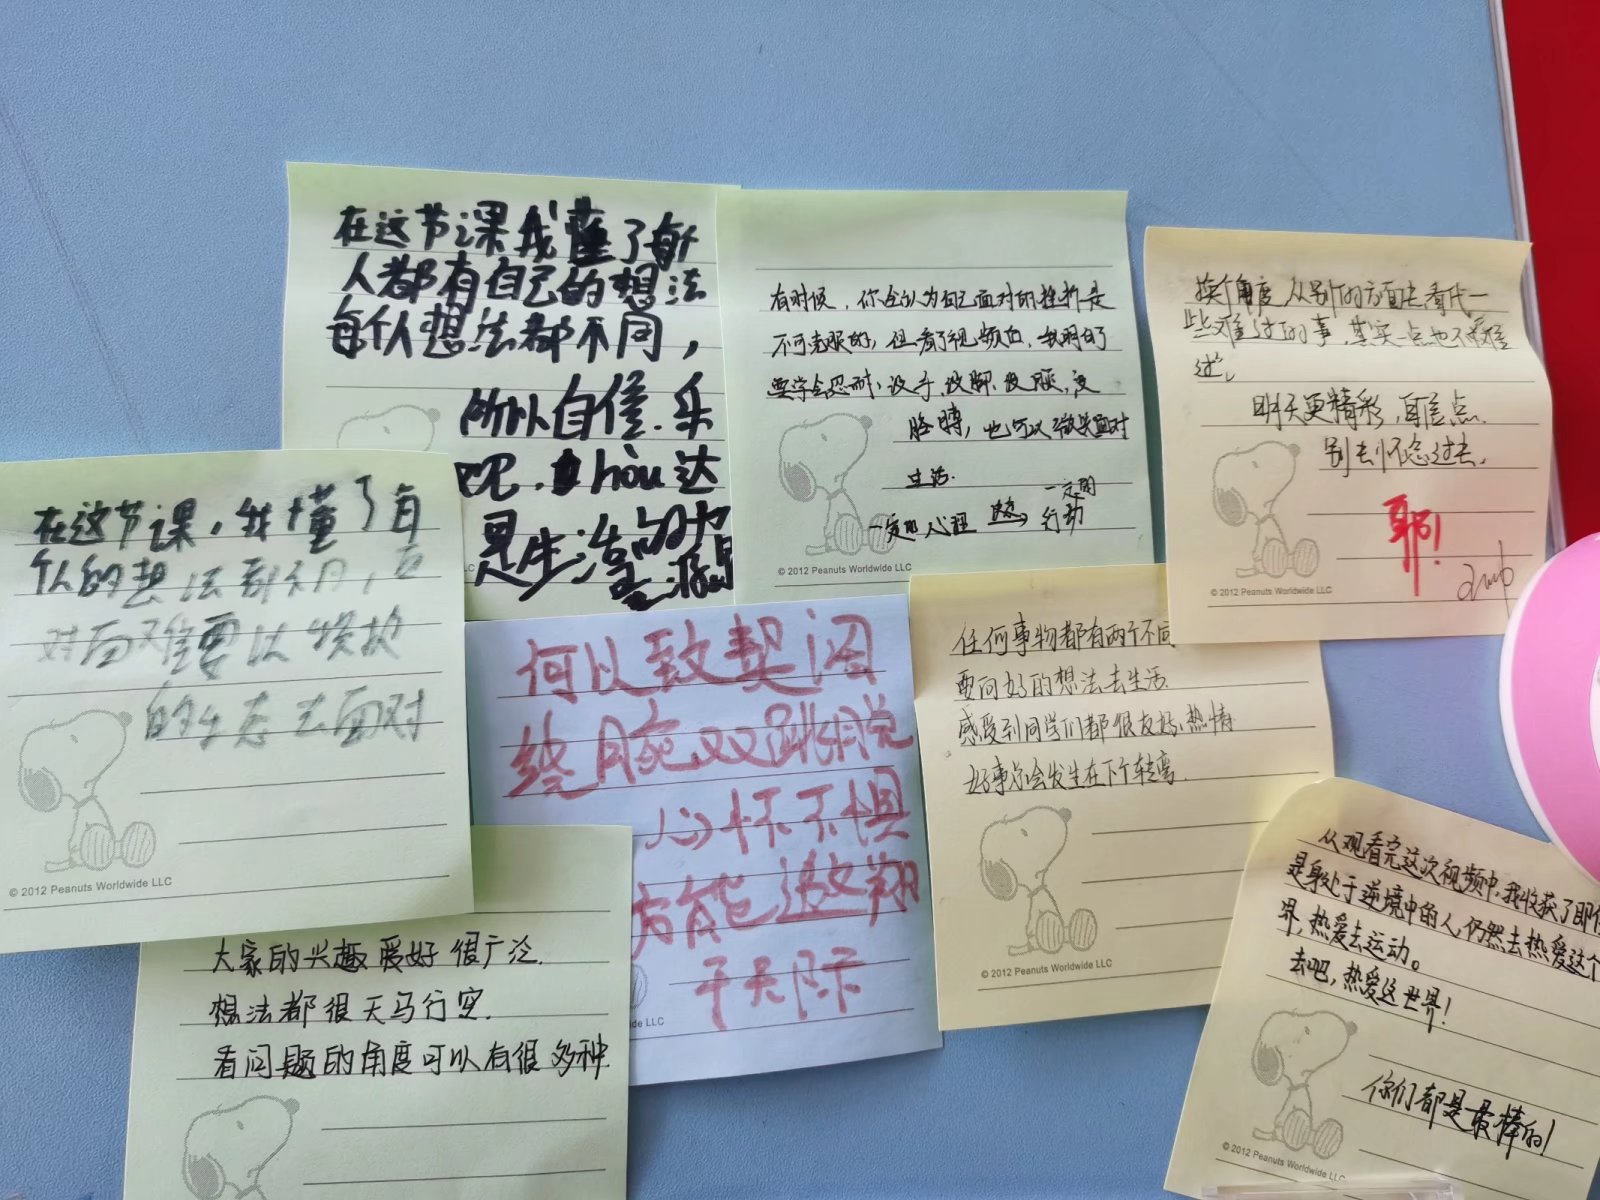 在这节课我懂了每个
人都有自己的想法
每个人想法都不同，
所以自信.乐
吧.hòu达
是生活的
有时候，你会认为自己面对的挫折是
不可克服的，但看了视频后，我明白了
要学会忍耐，没手，没脚，没腿，没
胳膊，也可以微笑面对
生活.
一定的心理 行动
© 2012 Peanuts Worldwide LLC
换个角度，从别的方面去看待一
些难过的事，其实一点也不难
过。
明天更精彩，自信点.
别去怀念过去.
耶！
© 2012 Peanuts Worldwide LLC
在这节课，我懂了每
个人的想法都不同，
对面难要以
的心态去面对
© 2012 Peanuts Worldwide LLC
何以致契阔
绕腕双跳脱
心怀不惧
方能遨翔
于天际
de LLC
任何事物都有两个不同
要向好的想法去生活.
感受到同学们都很友好，热情
好事总会发生在下个转弯.
© 2012 Peanuts Worldwide LLC
大家的兴趣爱好很广泛.
想法都很天马行空.
看问题的角度可以有很多种.
从观看完这次视频中，我收获了即使
是身处于逆境中的人，仍然去热爱这个
界，热爱去运动。
去吧，热爱这世界！
你们都是最棒的！
© 2012 Peanuts Worldwide LLC